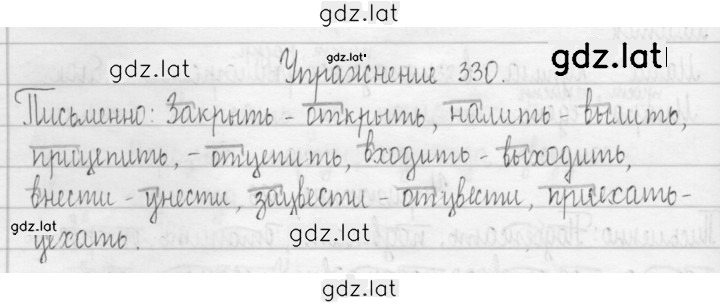 gdz.lat
gdz.lat
gdz.lat
gdz.lat
Упражнение 330.
Письменно: Закрыть - открыть, налить - вылить,
прицепить, - отцепить, входить - выходить,
внести - унести, зацвести - отцвести, приехать-
уехать.
gdz.lat
gdz.lat
gdz.lat